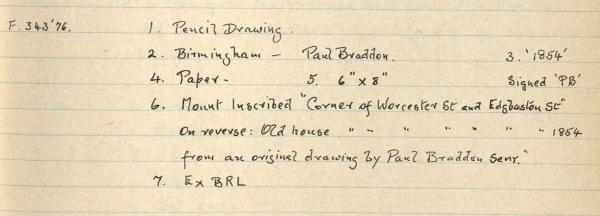 F. 343'76. 1. Pencil Drawing.
2. Birmingham – Paul Braddon. 3. '1854'
4. Paper – 5. 6" x 8" Signed 'PB'
6. Mount Inscribed "Corner of Worcester St and Edgbaston St"
On reverse: Old house " " " " " " 1854
from an original drawing by Paul Braddon Senr."
7. Ex BRL